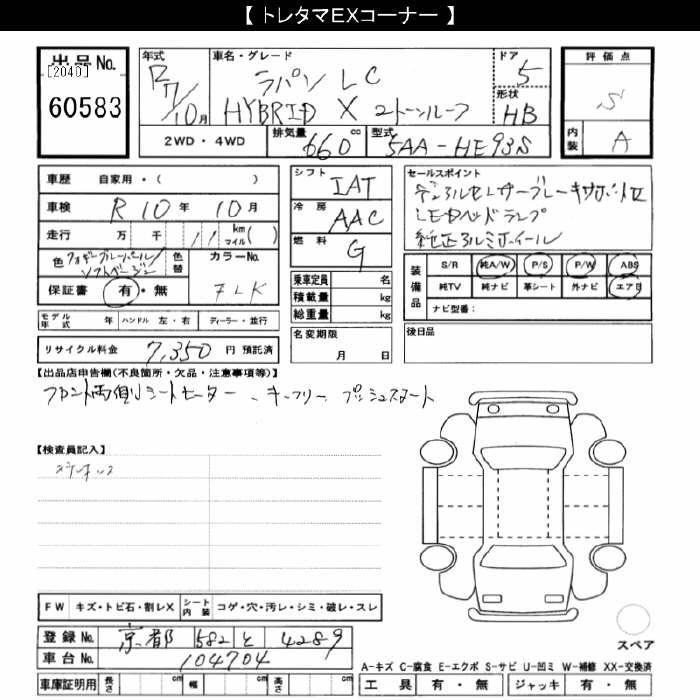 【 トレタマEXコーナー 】
出品 No. [2040] 60583
年式 R7/10月
車名・グレード ラパン LC
HYBRID X 2トーンルーフ
ドア 5
形状 HB
評価点 S
内装 A
2WD・4WD 排気量 660 cc 型式 5AA-HE93S
車歴 自家用・( )
車検 R10年 10月
走行 万 千 11 km マイル( )
色 フォギーブルーパール/ソフトベージュ 色替 カラーNo. FLK
保証書 有・無
シフト IAT
冷房 AAC
燃料 G
乗車定員 名
積載量 kg
総重量 kg
セールスポイント
デュアルセンサーブレーキサポートII
LEDヘッドランプ
純正アルミホイール
装備品 S/R 純A/W P/S P/W ABS
純TV 純ナビ 革シート 外ナビ エアB
ナビ型番:
モデル年式 年 ハンドル 左・右 ディーラー・並行
名変期限 月 日
後日品
リサイクル料金 7,350 円 預託済
【出品店申告欄(不良箇所・欠品・注意事項等)】
フロント両側シートヒーター、キーフリー プッシュスタート
【検査員記入】
FW キズ・トビ石・割レX シート内装 コゲ・穴・汚レ・シミ・破レ・スレ
登録 No. 京都 582 と 4289
車台 No. 104704
スペア
A-キズ C-腐食 E-エクボ S-サビ U-凹ミ W-補修 XX-交換済
車庫証明用 長さ cm 幅 cm 高さ cm 工具 有・無 ジャッキ 有・無